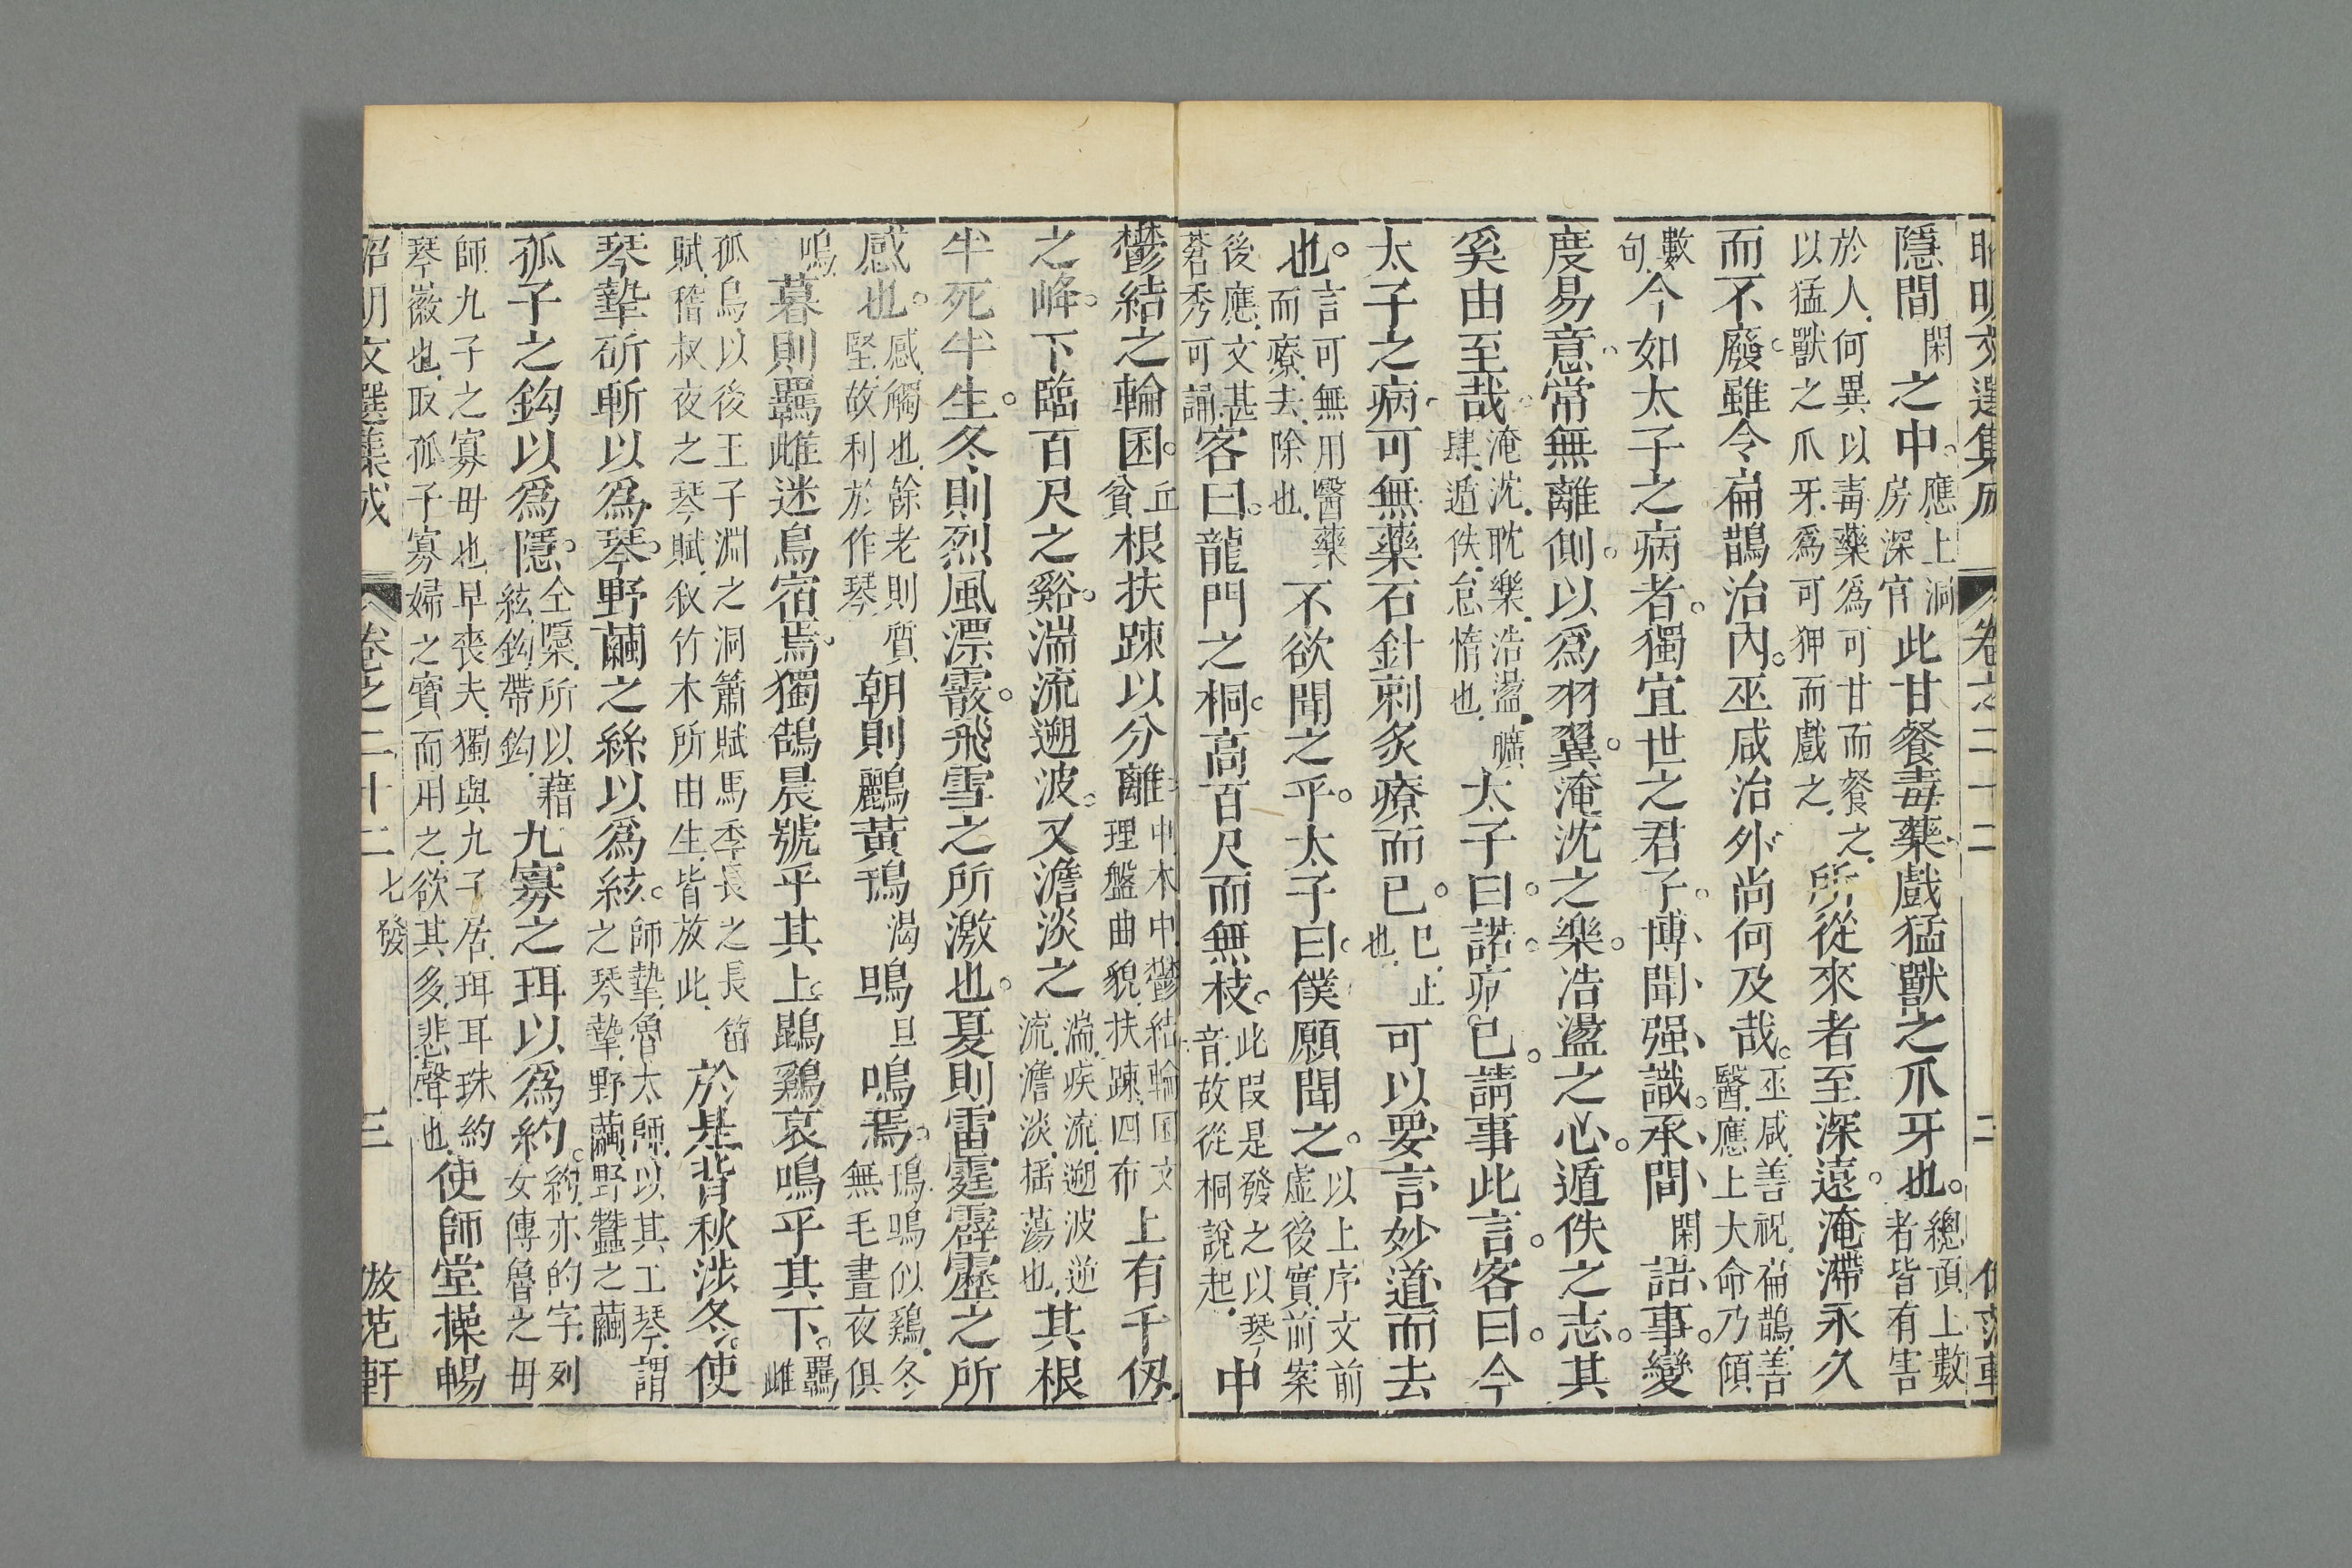 昭明文選集成 卷之二十二 二 倣范軒
隱間閑之中。應上洞房深宮此甘餐毒藥、戲猛獸之爪牙也。總頂上數者皆有害
於人、何異以毒藥爲可甘而餐之、以猛獸之爪牙、爲可狎而戲之、所從來者至深遠。淹滯永久
而不廢。雖令扁鵲治內。巫咸治外、尚何及哉。巫咸、善祝、扁鵲、善醫、應上大命乃傾
數句、今如太子之病者。獨宜世之君子。博聞强識。承間閑語事。變
度易意。常無離側。以爲羽翼。淹沈之樂。浩盪之心。遁佚之志。其
奚由至哉。淹沈、耽樂、浩盪、曠肆、遁佚、怠惰也、太子曰。諾。病已。請事此言。客曰。今
太子之病、可無藥石針刺灸療而已。已、止也、可以要言妙道而去
也。言可無用醫藥而療去、除也、不欲聞之乎。太子曰。僕願聞之。以上序文前虛後實、前案
後應、文甚蒼秀可誦、客曰。龍門之桐。高百尺而無枝。此段是發之以琴音、故從桐說起、中
鬱結之輪囷。丘貧根扶踈以分離。中木中、鬱結輪囷文理盤曲貌、扶踈、四布上有千仭
之峰。下臨百尺之谿。湍流遡波。又澹淡之湍、疾流、遡波逆流、澹淡、揺蕩也、其根
半死半生。冬則烈風漂霰。飛雪之所激也。夏則雷霆霹靂之所
感也。感、觸也、餘老則質堅、故利於作琴朝則鸝黃鳱渴鴠旦鳴焉。鳱鴠似鷄、冬無毛晝夜俱
鳴、暮則羈雌迷鳥宿焉。獨鵠晨號乎其上。鵾鷄哀鳴乎其下。羈雌
孤烏、以後王子淵之洞簫賦馬季長之長笛賦、稽叔夜之琴賦、叙竹木所由生、皆放此、於是背秋涉冬。使
琴摯斫斬以爲琴。野繭之絲以爲絃。師摯、魯太師、以其工琴、謂之琴摯、野繭、野蠶之繭
孤子之鈎以爲隱。仝檃、所以藉絃、鈎帶鈎、九寡之珥以爲約。約、亦的字、列女傳魯之母
師九子之寡母也、早喪夫、獨與九子居、珥耳珠約琴徽也、取孤子寡婦之寶而用之、欲其多悲聲也、使師堂操暢
昭明文選集成 卷之二十二七發 三 倣范軒